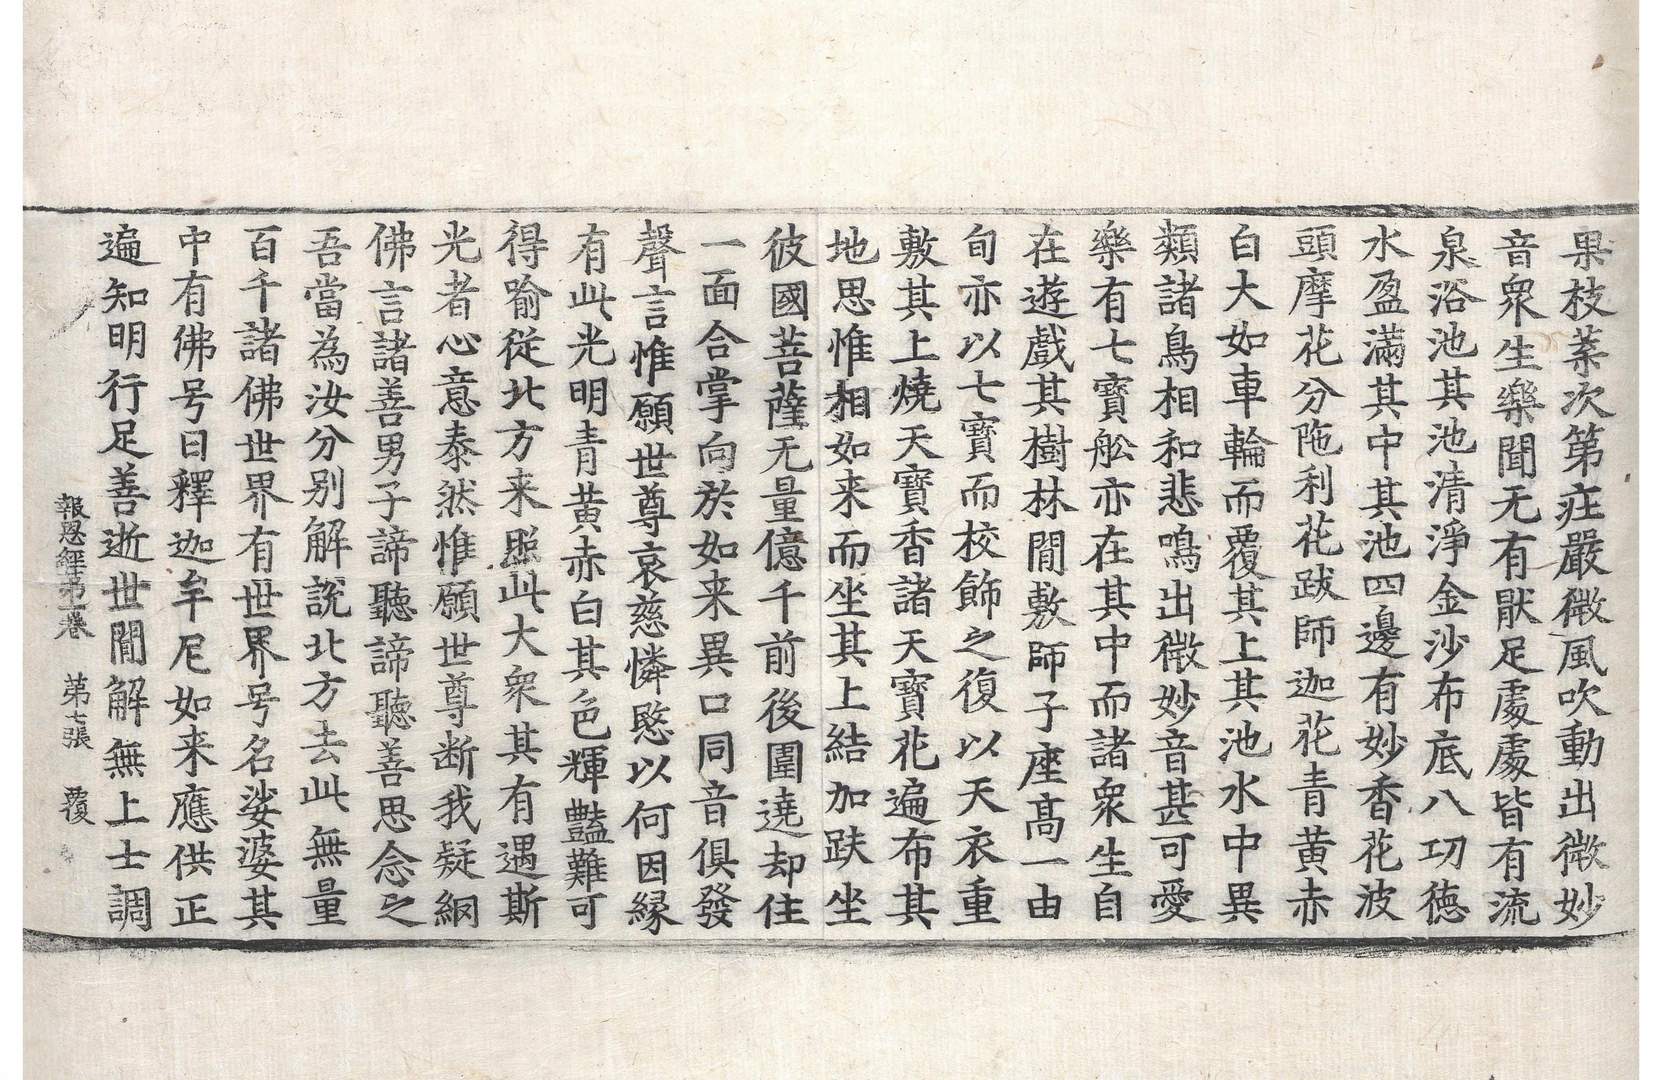 果枝葉次第庄嚴微風吹動出微妙
音衆生樂聞无有猒足處處皆有流
泉浴池其池清淨金沙布底八功德
水盈滿其中其池四邊有妙香花波
頭摩花分陁利花跋師迦花青黃赤
白大如車輪而覆其上其池水中異
類諸鳥相和悲鳴出微妙音甚可愛
樂有七寶舩亦在其中而諸衆生自
在遊戲其樹林閒敷師子座高一由
旬亦以七寶而校飾之復以天衣重
敷其上燒天寶香諸天寶花遍布其
地思惟相如来而坐其上結加趺坐
彼國菩薩无量億千前後圍遶却住
一面合掌向於如来異口同音俱發
聲言惟願世尊哀慈憐愍以何因緣
有此光明青黃赤白其色輝豔難可
得喻從北方来照此大衆其有遇斯
光者心意泰然惟願世尊断我疑網
佛言諸善男子諦聽諦聽善思念之
吾當為汝分別解說北方去此無量
百千諸佛世界有世界号名娑婆其
中有佛号曰釋迦牟尼如来應供正
遍知明行足善逝世閒解無上士調
報恩經第一卷　第七張　覆